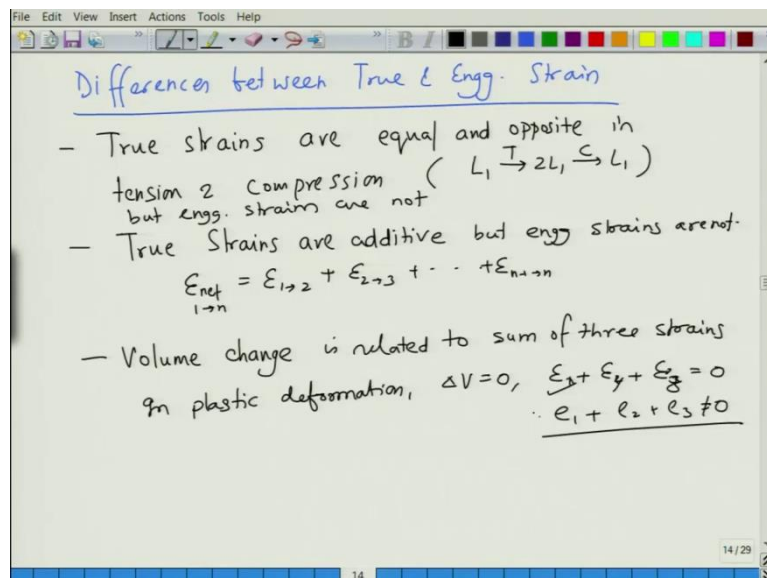 File Edit View Insert Actions Tools Help
Differences between True & Engg. Strain
- True strains are equal and opposite in
tension & compression ( L₁ T→ 2L₁ C→ L₁ )
but engg. strains are not
- True Strains are additive but engg strains are not.
Ɛnet = Ɛ1→2 + Ɛ2→3 + · · · +Ɛn-1→n
1→n
- Volume change is related to sum of three strains
In plastic deformation, ΔV=0, Ɛx + Ɛy + Ɛz = 0
e₁ + e₂ + e₃ ≠ 0
14/29
14